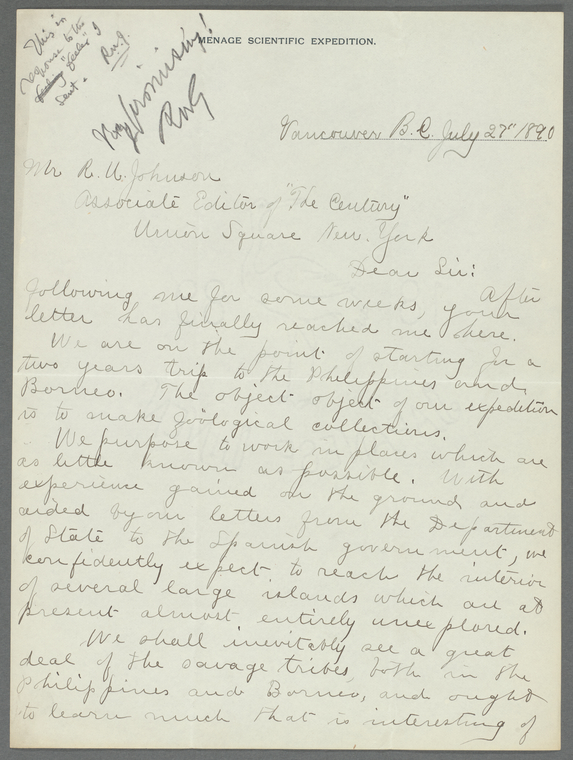 This in
response to the
"feeler" I
sent.
R.U.J.
Very promising!
RWG
MENAGE SCIENTIFIC EXPEDITION.
Vancouver B.C. July 27" 1890
Mr R. U. Johnson
Associate Editor of "The Century"
Union Square New. York
Dear Sir:
After
following me for some weeks, your
letter has finally reached me here.
We are on the point of starting for a
two years trip to the Philippines and
Borneo. The object object of our expedition
is to make zoölogical collections.
We purpose to work in places which are
as little known as possible. With
experience gained on the ground and
aided by our letters from the Department
of State to the Spanish government, we
confidently expect to reach the interior
of several large islands which are at
present almost entirely unexplored.
We shall inevitably see a great
deal of the savage tribes, both in the
Philippines and Borneo, and ought
to learn much that is interesting of